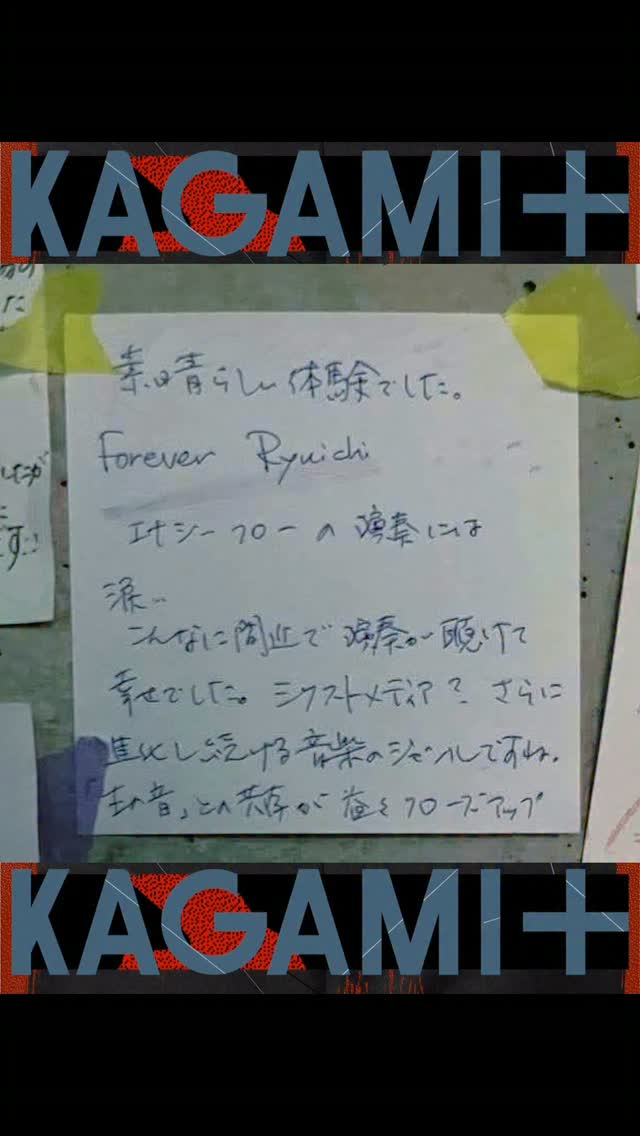 KAGAMI+
素晴らしい体験でした。
Forever Ryuichi
エナジーフローの演奏には
涙…
こんなに間近で演奏が聴けて
幸せでした。ミクストメディア? さらに
進化し続ける音楽のジャンルですね。
「生の音」との共存が益々クローズアップ
KAGAMI+